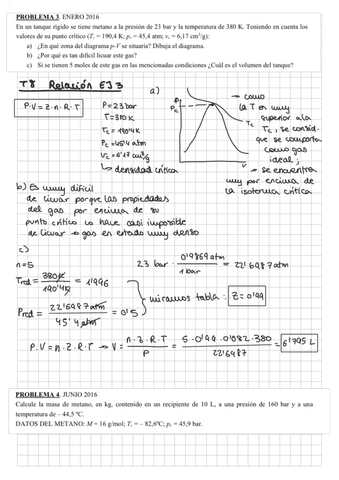 PROBLEMA 3. ENERO 2016
En un tanque rígido se tiene metano a la presión de 23 bar y la temperatura de 380 K. Teniendo en cuenta los
valores de su punto crítico (Tc = 190,4 K; pc = 45,4 atm; vc = 6,17 cm³/g):
a) ¿En qué zona del diagrama p-V se situaría? Dibuja el diagrama.
b) ¿Por qué es tan difícil licuar este gas?
c) Si se tienen 5 moles de este gas en las mencionadas condiciones ¿Cuál es el volumen del tanque?
T8 Relación EJ3
a)
P·V = Z·n·R·T
P = 23 bar
T = 380 K
Tc = 190'4 K
Pc = 45'4 atm
Vc = 6'17 cm³/g
↳ densidad crítica
P
Pc
Tc
→ como
la T es muy
superior a la
Tc, se consid-
que se comporta
como gas
ideal;
→ se encuentra
muy por encima de
la isoterma crítica
b) Es muy difícil
de licuar porque las propiedades
del gas por encima de su
punto crítico lo hace casi imposible
de licuar → gas en estado muy denso
c)
n = 5
23 bar · 0'9869 atm / 1 bar = 22'6987 atm
Tred = 380 K / 190'4 K = 1'996
Pred = 22'6987 atm / 45'4 atm = 0'5
miramos tabla: Z = 0'99
P·V = n·Z·R·T → V = n·Z·R·T / P = 5·0'99·0'082·380 / 22'6987 = 6'795 L
PROBLEMA 4. JUNIO 2016
Calcule la masa de metano, en kg, contenido en un recipiente de 10 L, a una presión de 160 bar y a una
temperatura de – 44,5 ºC.
DATOS DEL METANO: M = 16 g/mol; Tc = – 82,6ºC; pc = 45,9 bar.